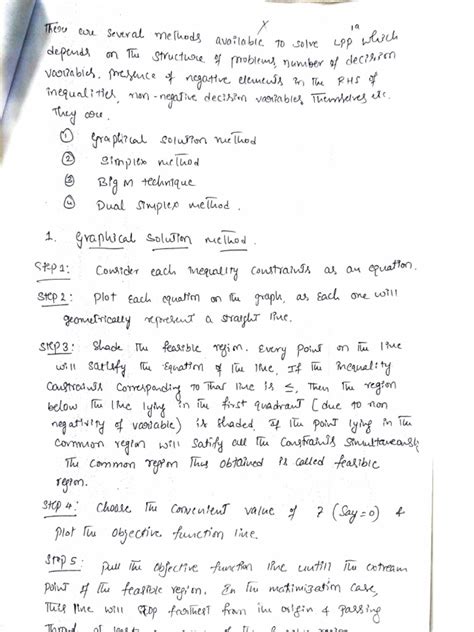 There are several methods available to solve LPP which
depends on the structure of problems, number of decision
variables, presence of negative elements in the RHS of
inequalities, non-negative decision variables themselves etc.
They are.
① Graphical solution method
② Simplex method
③ Big M technique
④ Dual Simplex method.
1. Graphical Solution method.
Step 1: Consider each inequality constraints as an equation.
Step 2: Plot each equation on the graph, as each one will
geometrically represent a straight line.
Step 3: Shade the feasible region. Every point on the line
will satisfy the equation of the line. If the inequality
constraints corresponding to that line is ≤, then the region
below the line lying in the first quadrant [due to non
negativity of variable) is shaded. If the point lying in the
common region will satisfy all the constraints simultaneously
The common region thus obtained is called feasible
region.
Step 4: Choose the convenient value of Z (say=0) &
plot the objective function line.
Step 5: Pull the objective function line untill the extream
point of the feasible region. In the maximization case,
this line will stop farthest from the origin & passing
through at least